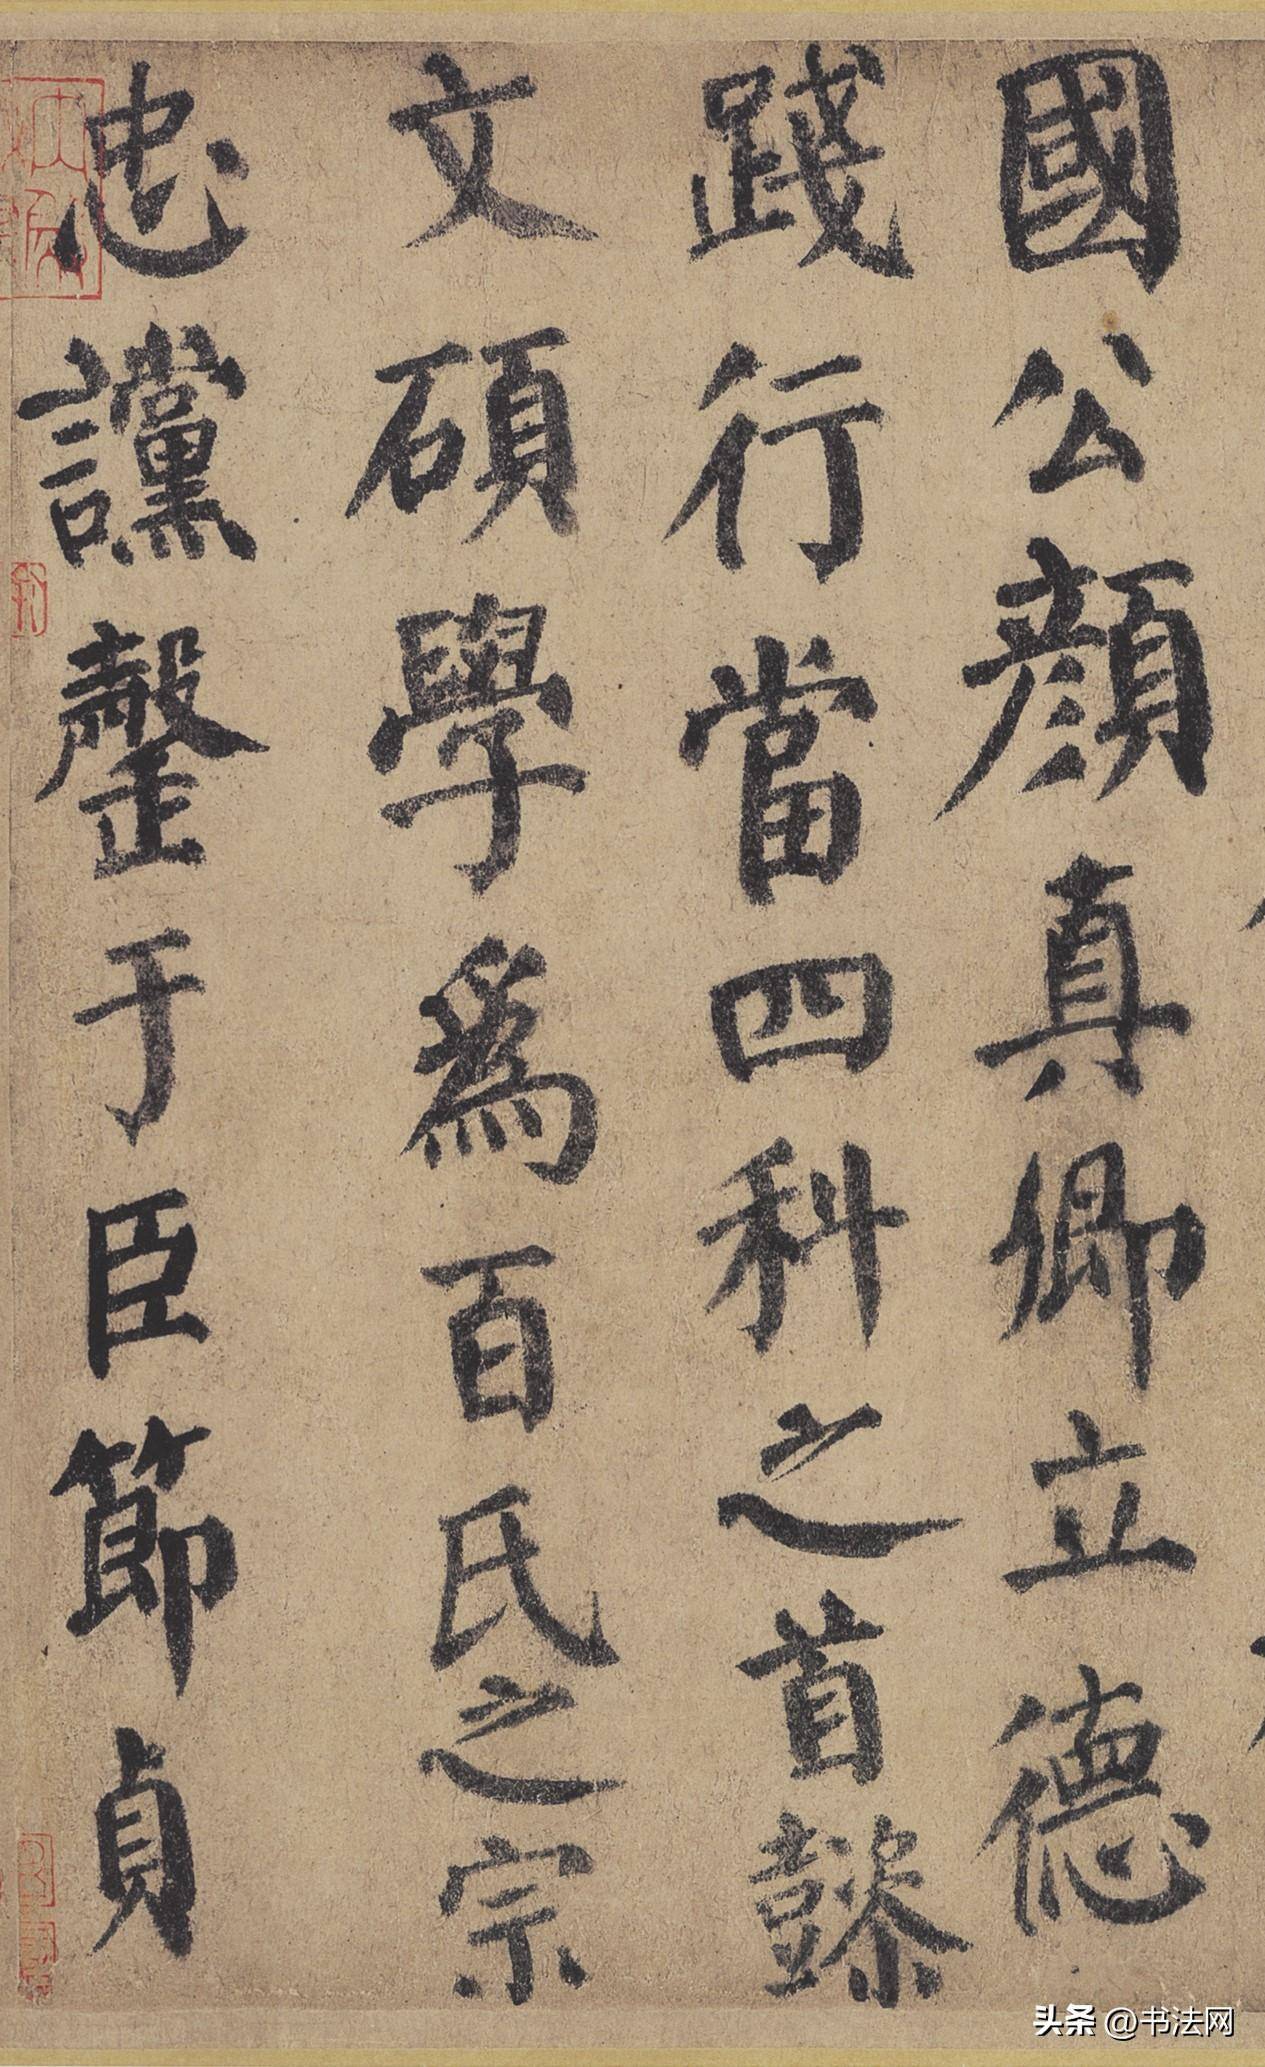 國公顔真卿立德
踐行當四科之首懿
文碩學為百氏之宗
忠讜罄于臣節貞
头条 @书法网